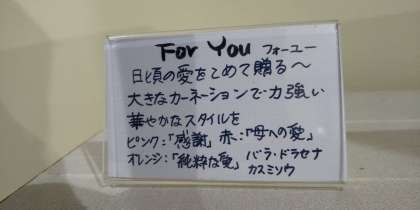 For You フォーユー
日頃の愛をこめて贈る〜
大きなカーネーションで力強い
華やかなスタイルを
ピンク:「感謝」 赤:「母への愛」
オレンジ:「純粋な愛」 バラ・ドラセナ
カスミソウ